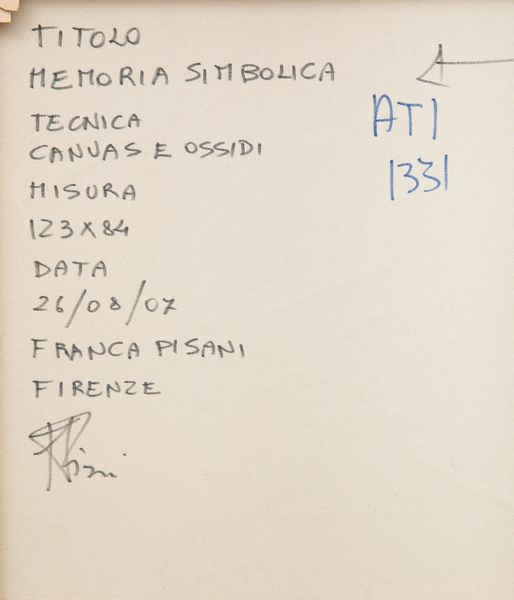 TITOLO
MEMORIA SIMBOLICA
TECNICA
CANVAS E OSSIDI
MISURA
123X84
DATA
26/08/07
FRANCA PISANI
FIRENZE
ATI
1331